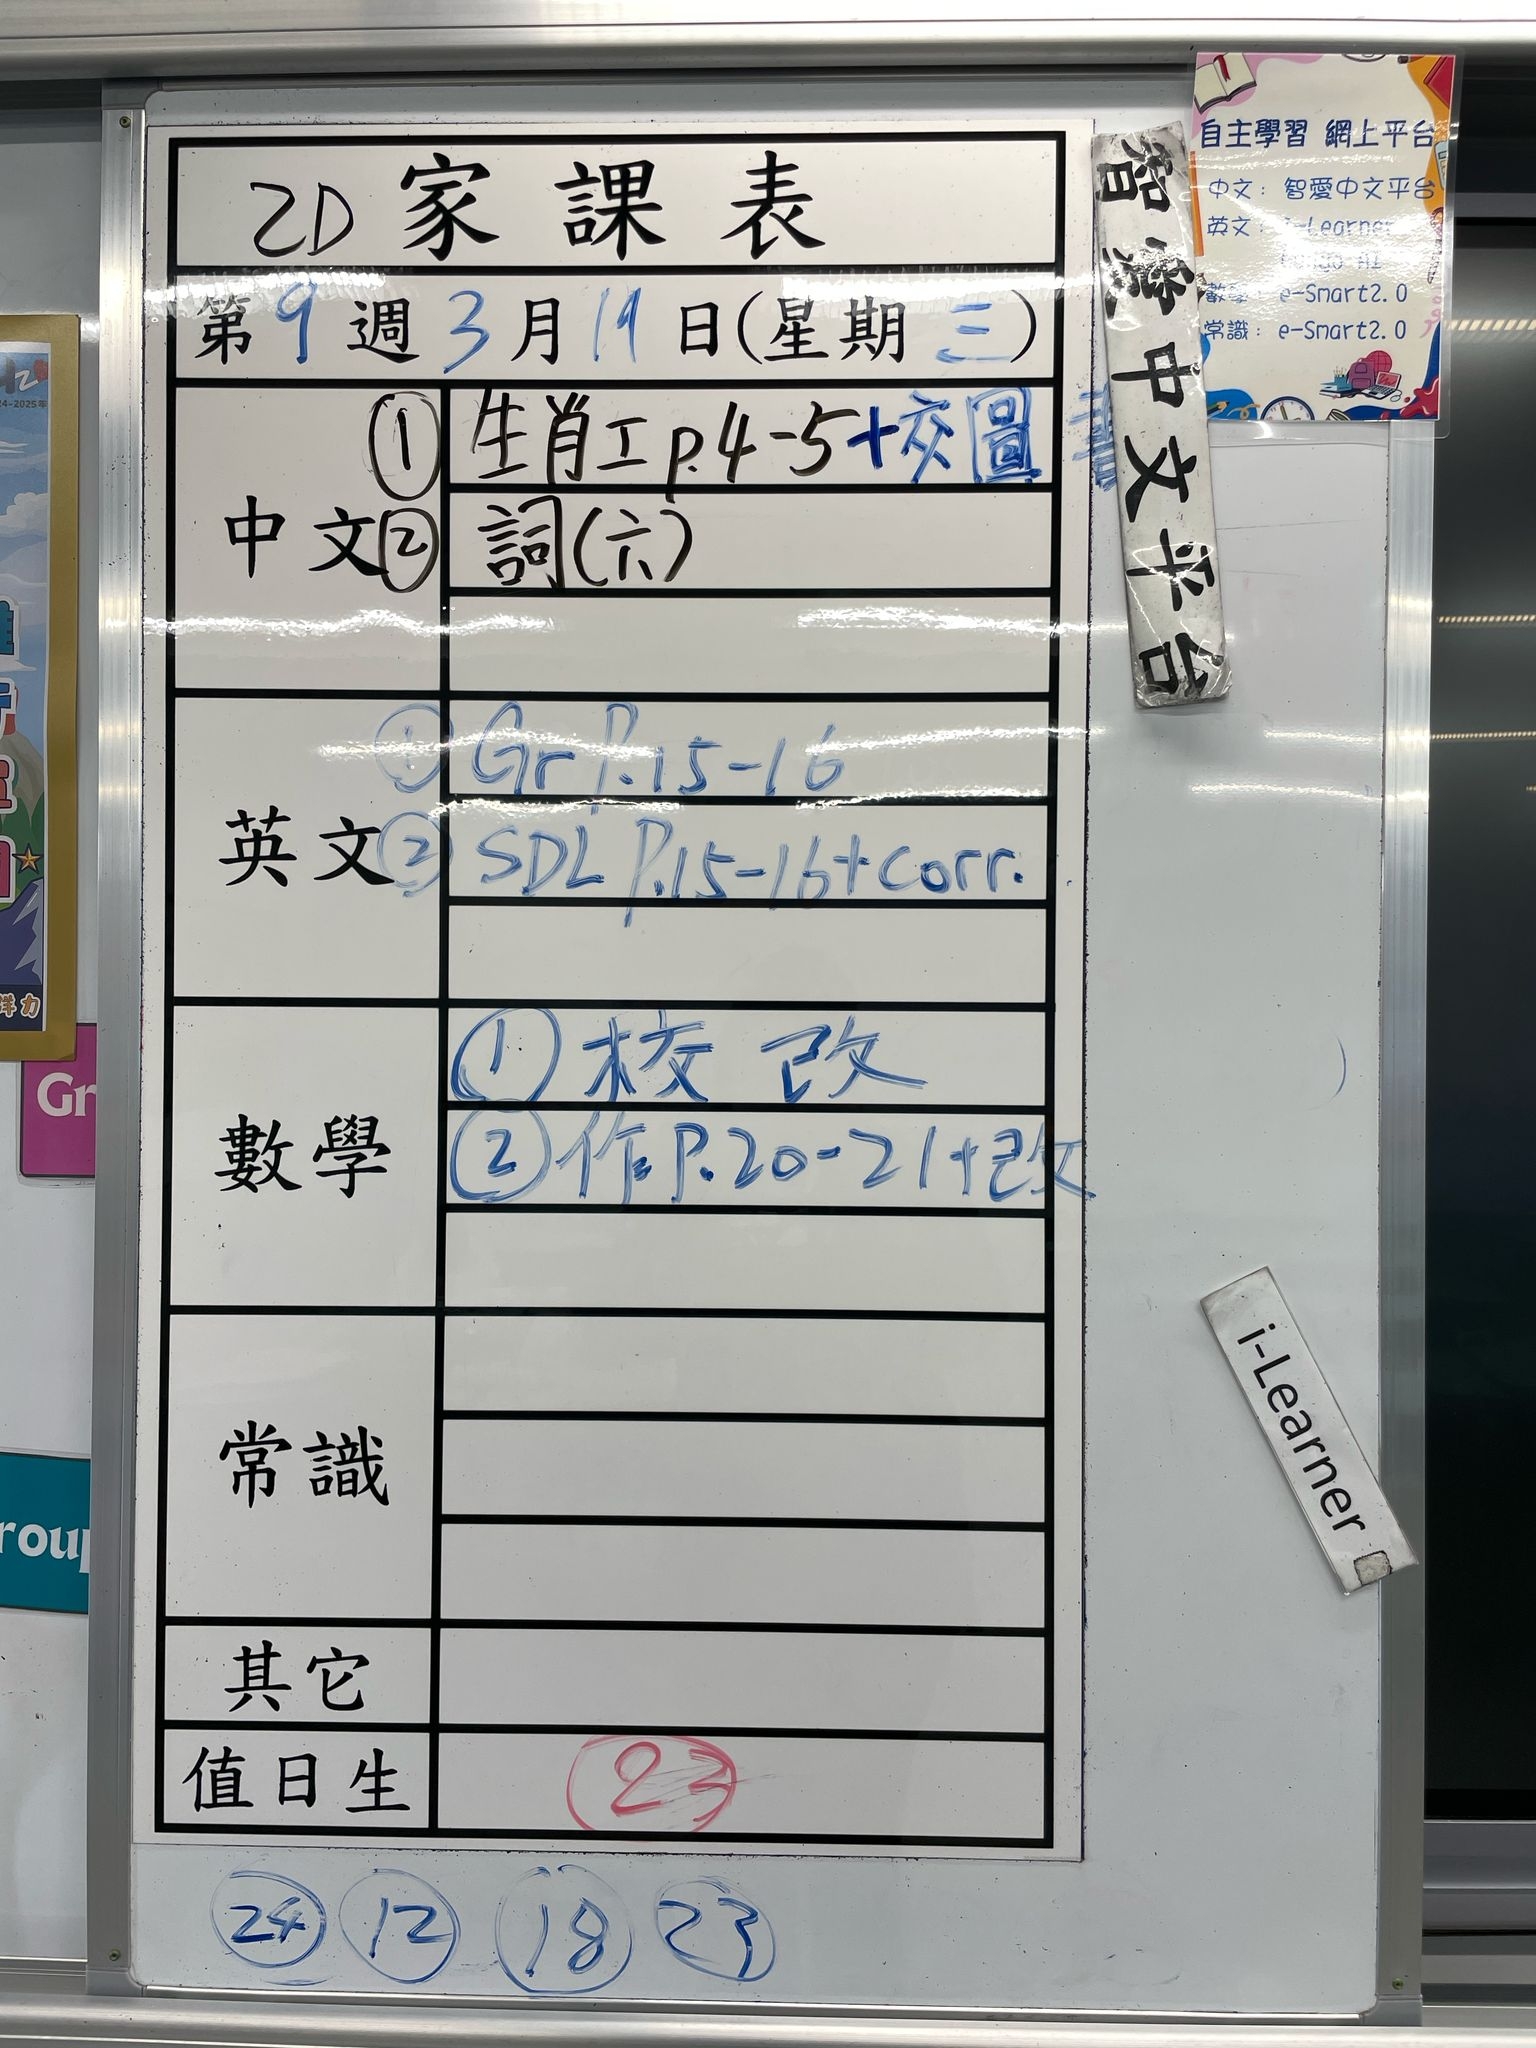 2D 家課表
第9週3月19日(星期三)
中文
① 生肖工p.4-5+交圖書
② 詞(六)
英文
① Gr P.15-16
② SDL P.15-16+corr.
數學
① 校改
② 作P.20-21+改
常識
其它
值日生 23
24 12 18 23
智愛中文平台
自主學習 網上平台
中文: 智愛中文平台
英文: i-Learner
AI
數學: e-Smart2.0
常識: e-Smart2.0
i-Learner
24-2025年
Gr
roup